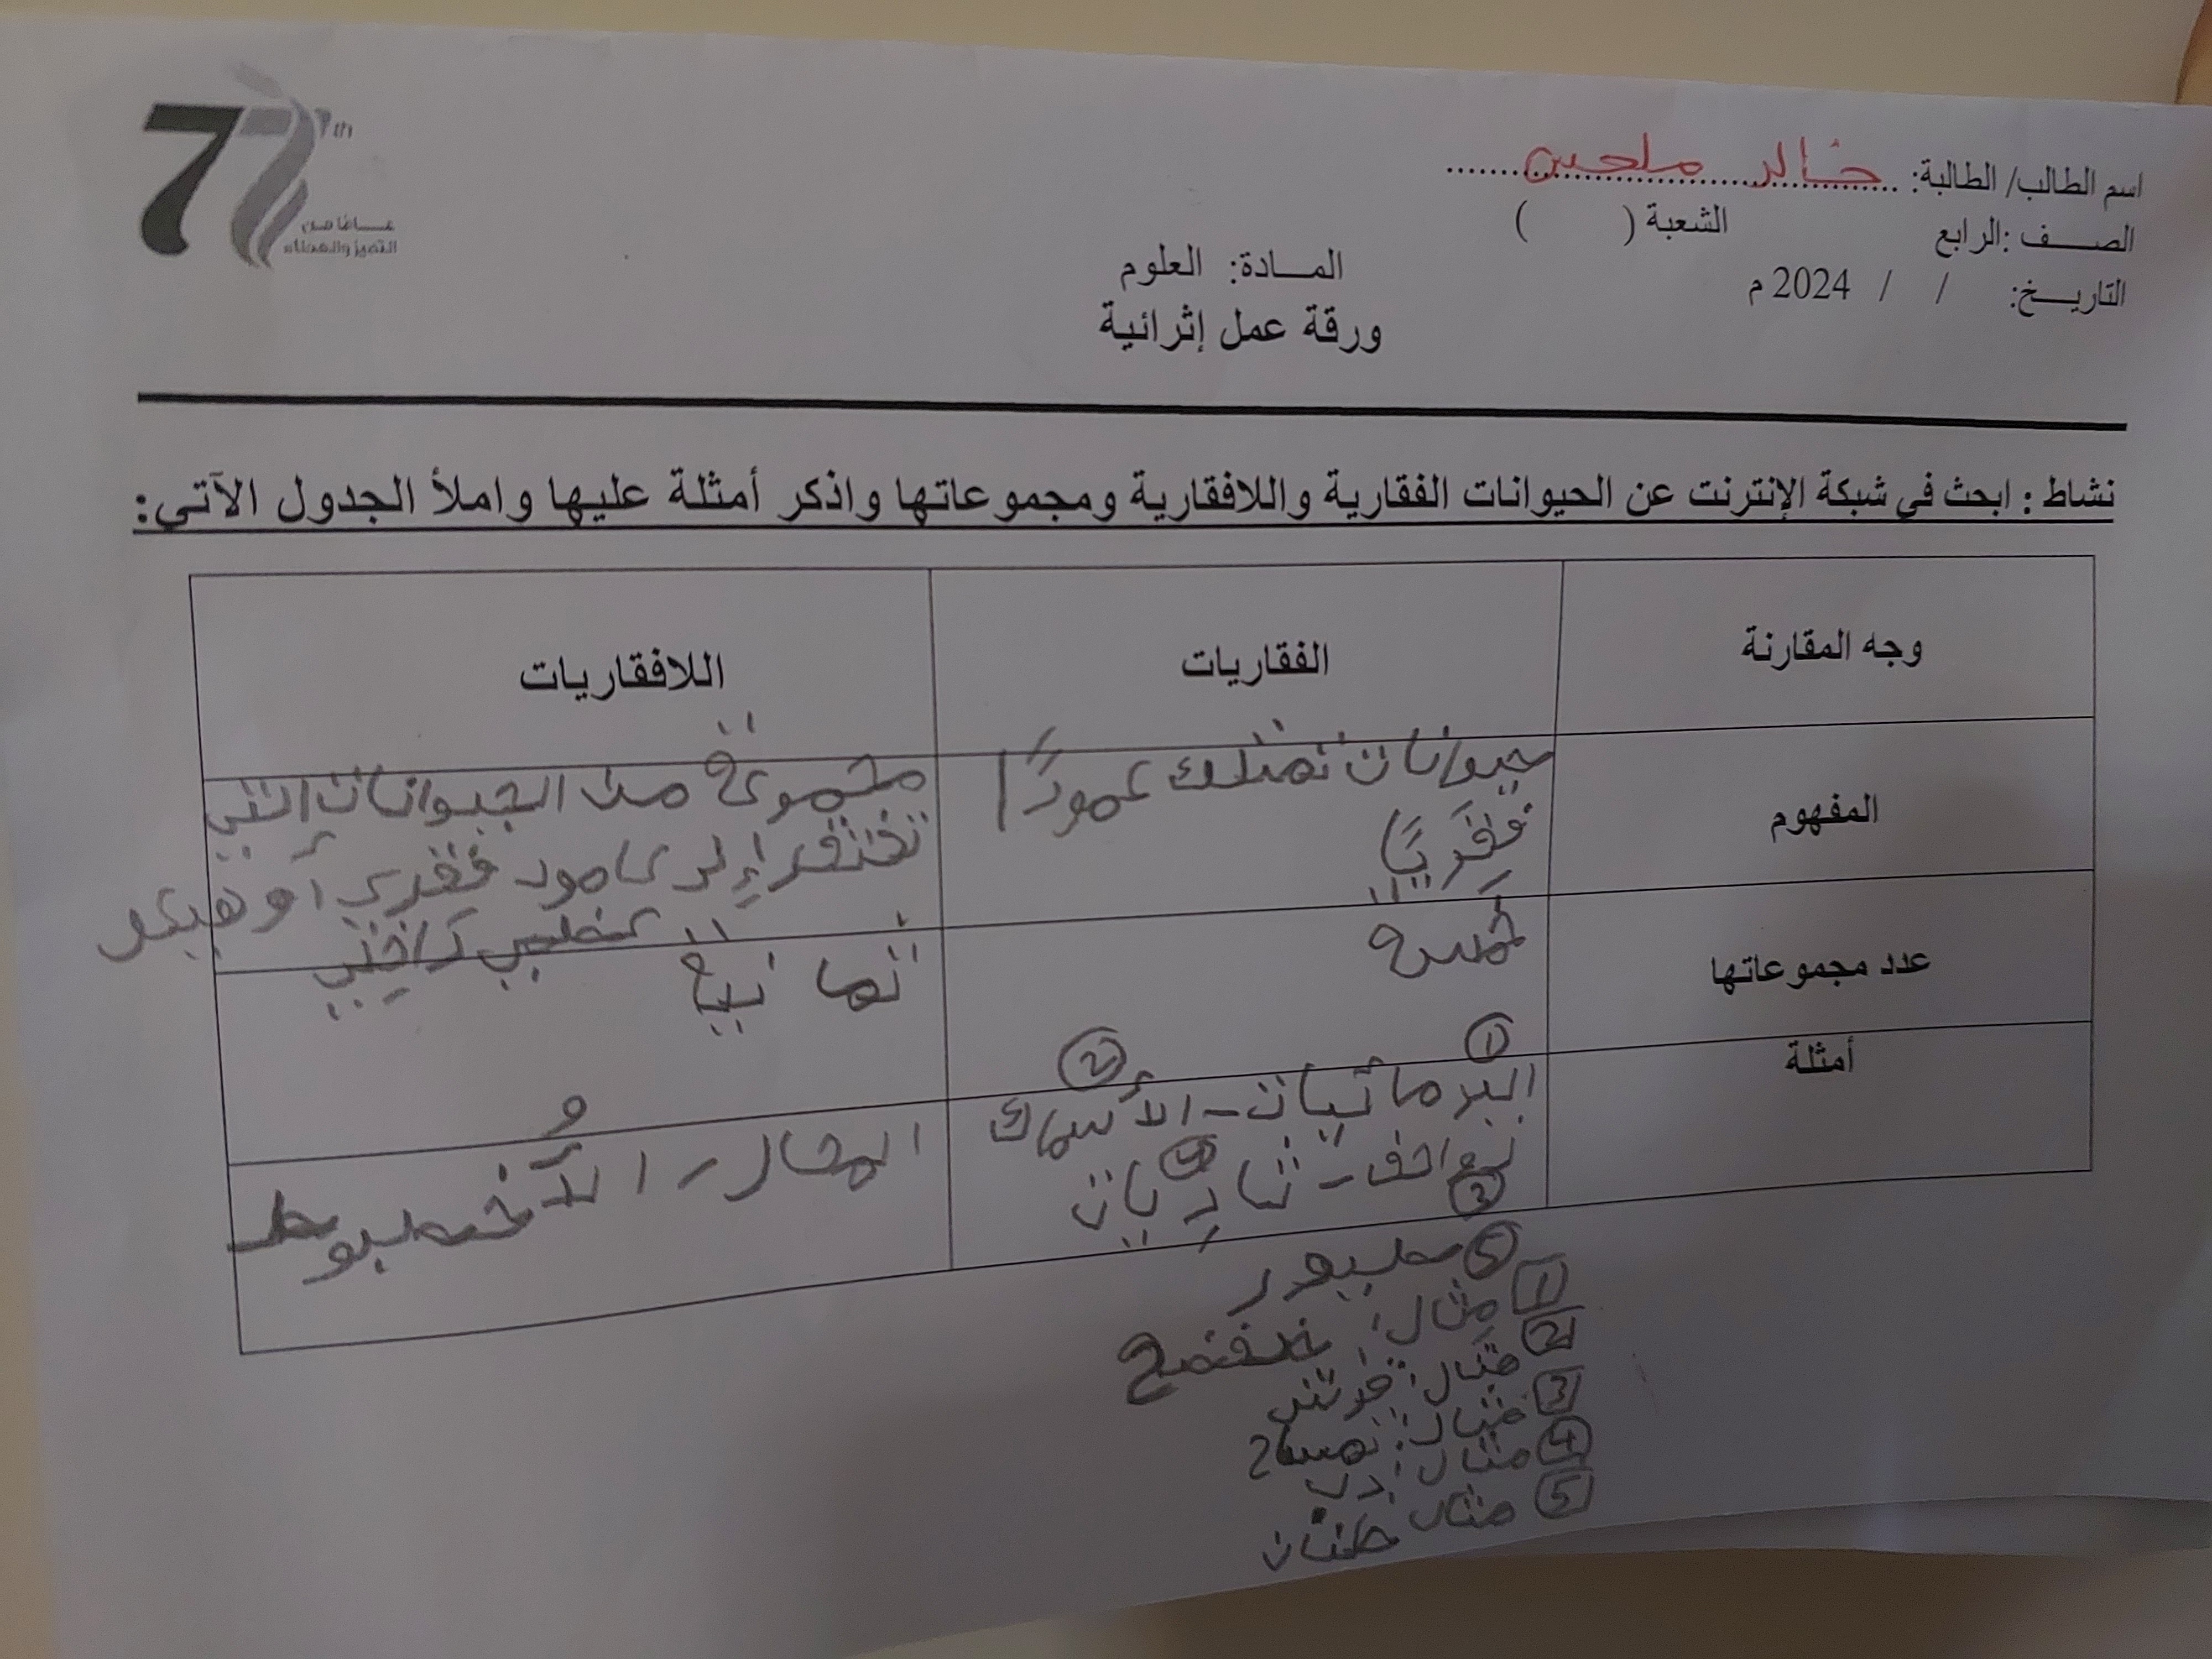 77th
عاماً من
التميز والعطاء
اسم الطالب/ الطالبة: خالد ملحين
الصف :الرابع الشعبة ( )
التاريخ: / / 2024 م
المادة: العلوم
ورقة عمل إثرائية
نشاط : ابحث في شبكة الإنترنت عن الحيوانات الفقارية واللافقارية ومجموعاتها واذكر أمثلة عليها واملأ الجدول الآتي:
وجه المقارنة الفقاريات اللافقاريات
المفهوم
حيوانات تمتلك عمودًا
فِقَريًا
مجموعة من الحيوانات التي
تفتقر إلى عامود فقري أو هيكل
عظمي داخلي
عدد مجموعاتها خمسة ثمانية
أمثلة
① البرمائيات - الأسماك ②
زواحف - ثديات ④
③
⑤ طيور
المحار - الأُخطبوط
1 مثال: ضفضع
2 مثال: قرش
3 مثال: تمساح
4 مثال: دب
5 مثال